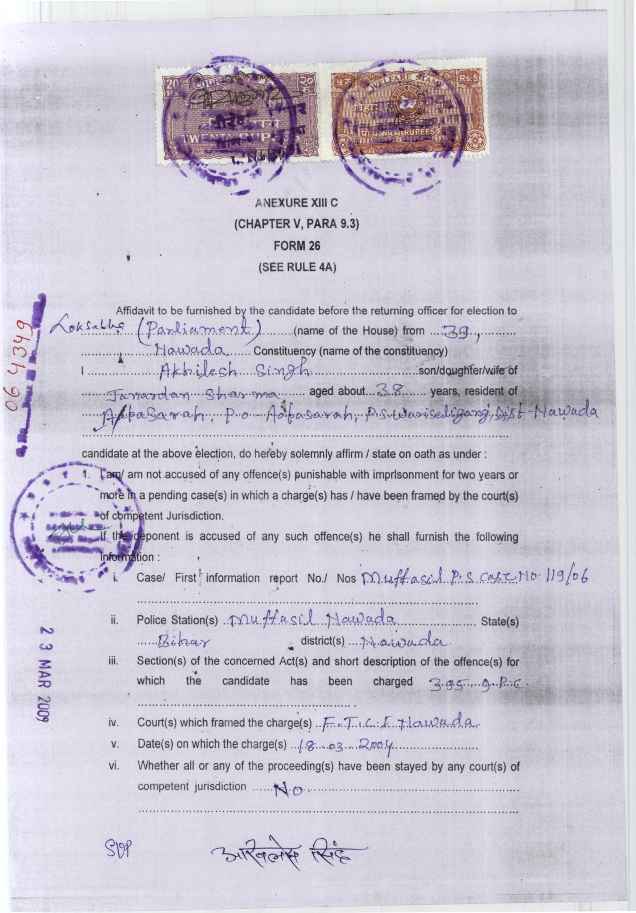 20
WELFARE
RS.5
ANEXURE XIII C
(CHAPTER V, PARA 9.3)
FORM 26
(SEE RULE 4A)
Affidavit to be furnished by the candidate before the returning officer for election to
Loksabha (Parliament) (name of the House) from 39,
Nawada Constituency (name of the constituency)
I Akhilesh Singh son/daughter/wife of
Janardan Sharma aged about 38 years, resident of
Appasarah, P.O- Appasarah, P.S. Warisaliganj, Dist- Nawada
candidate at the above election, do hereby solemnly affirm / state on oath as under :
1. I am/ am not accused of any offence(s) punishable with imprisonment for two years or
more in a pending case(s) in which a charge(s) has / have been framed by the court(s)
of competent Jurisdiction.
If the deponent is accused of any such offence(s) he shall furnish the following
information :
i. Case/ First information report No./ Nos Muffasil P.S case No. 119/06
ii. Police Station(s) Muffasil Nawada State(s)
Bihar district(s) Nawada
iii. Section(s) of the concerned Act(s) and short description of the offence(s) for
which the candidate has been charged 395
iv. Court(s) which framed the charge(s) F.T.C. I Nawada
v. Date(s) on which the charge(s) 18.03.2004
vi. Whether all or any of the proceeding(s) have been stayed by any court(s) of
competent jurisdiction No
अखिलेश सिंह
064349
23 MAR 2009